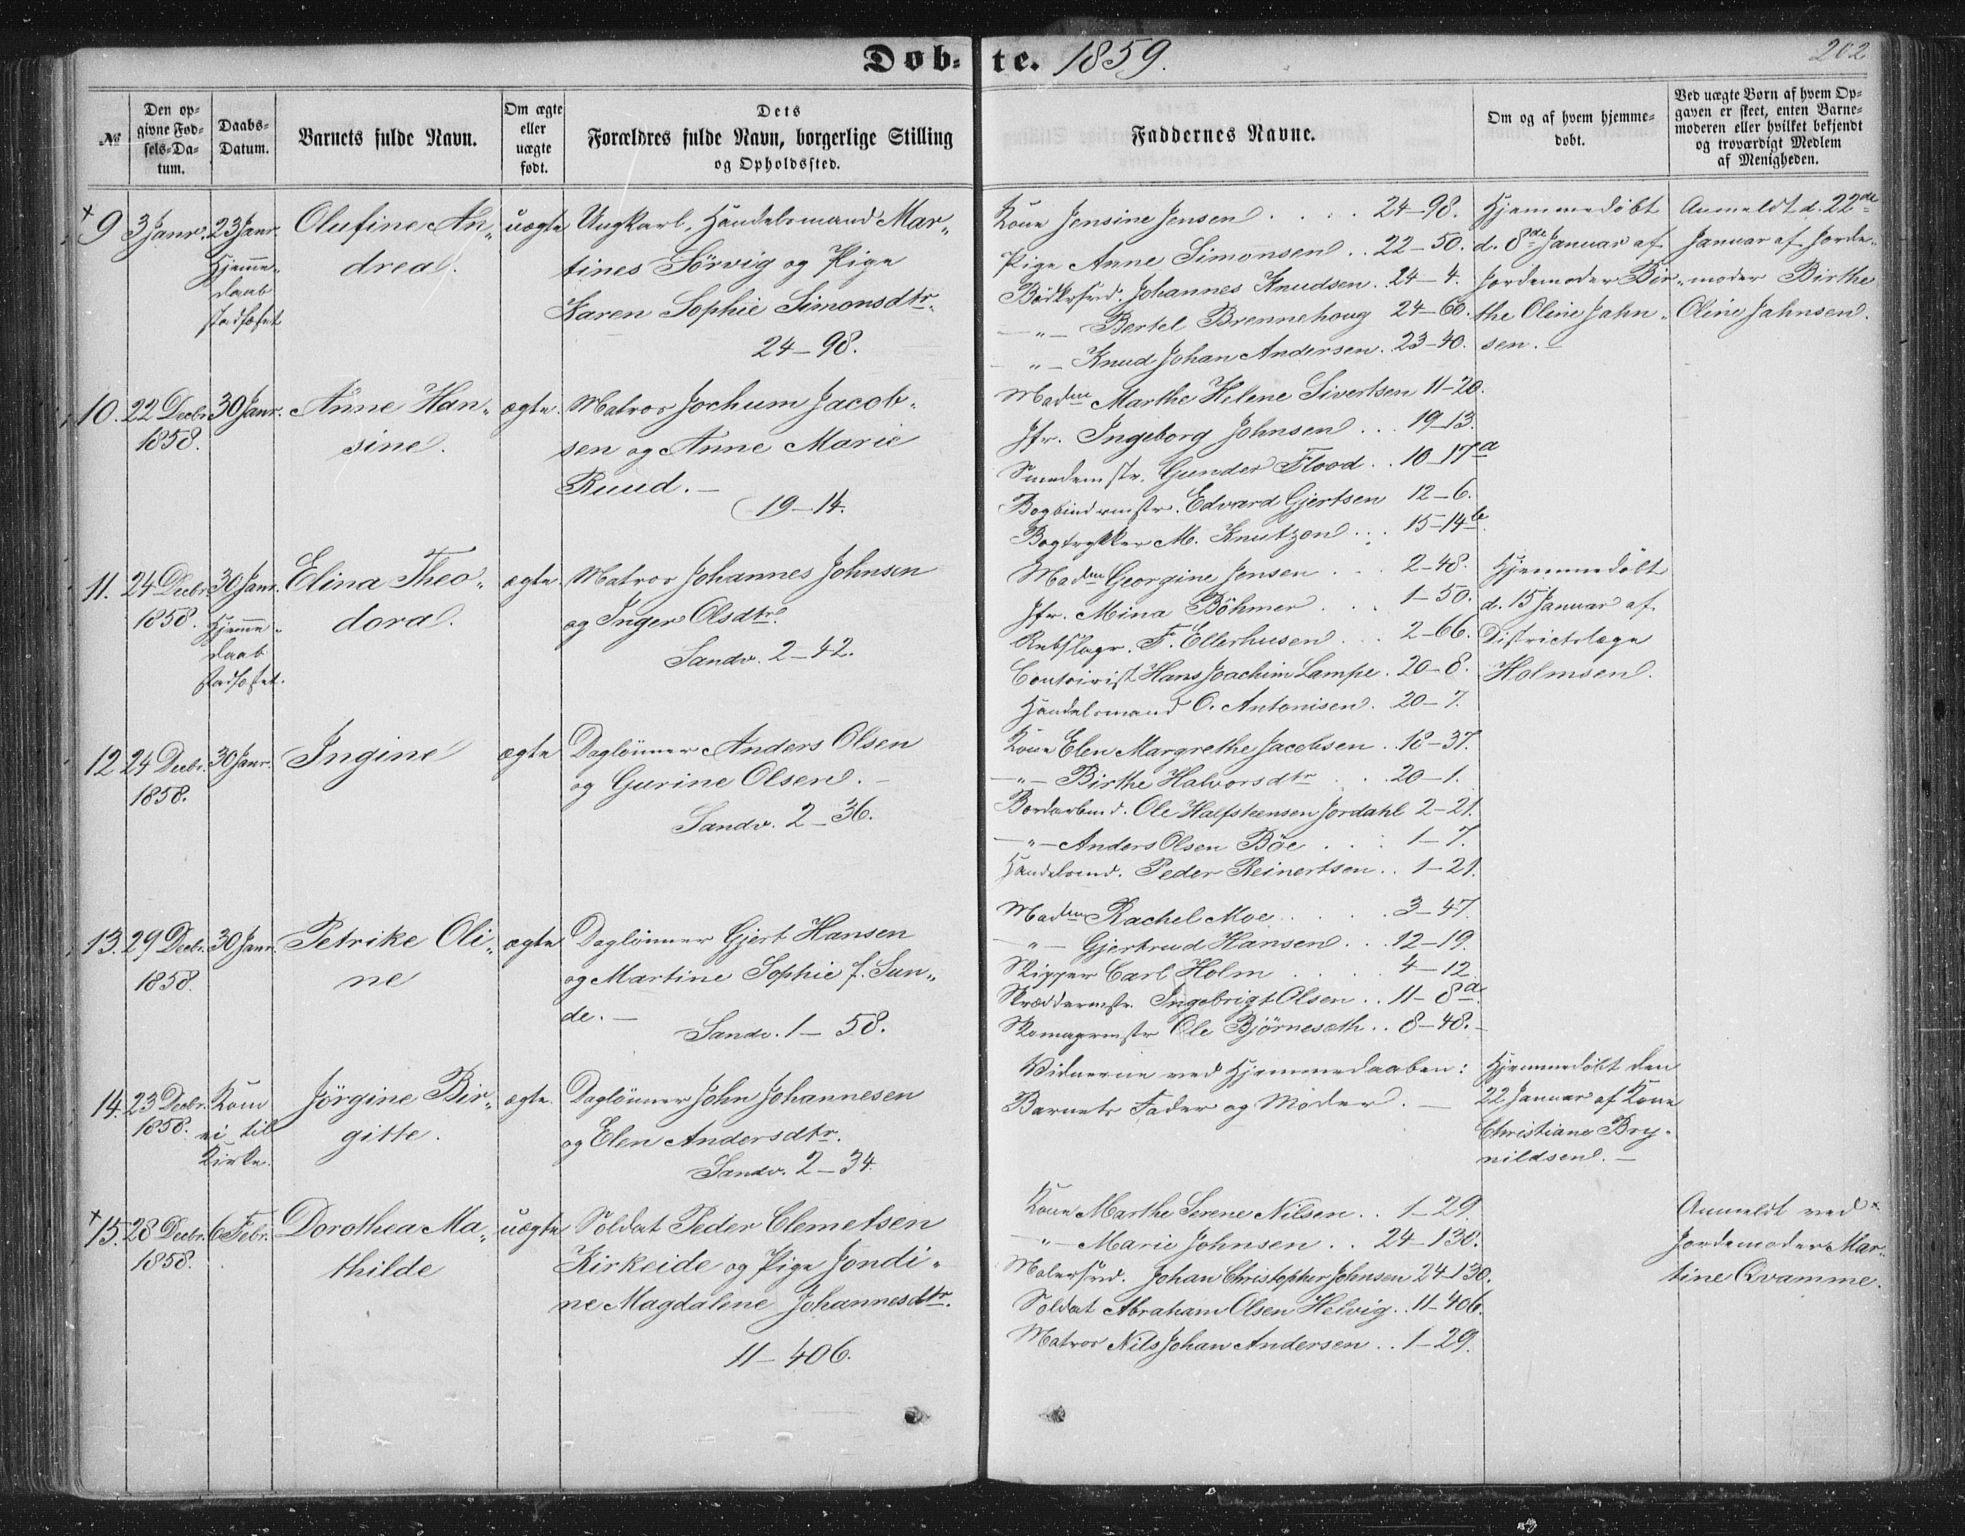 Døb-te. 1859.
202
№
Den op-
givne Fød-
sels-Da-
tum.
Daabs-
Datum.
Barnets fulde Navn.
Om ægte
eller
uægte
født.
Dets
Forældres fulde Navn, borgerlige Stilling
og Opholdssted.
Faddernes Navne.
Om og af hvem hjemme-
døbt.
Ved uægte Børn af hvem Op-
gaven er skeet, enten Barne-
moderen eller hvilket bekjendt
og troværdigt Medlem
af Menigheden.
+ 9
3 Janr.
23 Janr.
Hjemme-
daab
stadfæstet
Olufine An-
drea.
uægte
Ungkarl, Handelsmand Mar-
tines Sörvig og Pige
Karen Sophie Simonsdtr.
24-98.
Kone Jensine Jensen . . . . 24-98.
Pige Anne Simonsen . . 22-50.
Bödkersvd. Johannes Knudsen. 24-4.
-"- Bertel Brennehoug 24-60.
-"- Knud Johan Andersen. 23-40.
Hjemmedöbt
d. 8de Januar af
Jordemoder Bir-
the Oline Jahn-
sen.
Anmeldt d. 22de
Januar af Jorde-
moder Birthe
Oline Jahnsen.
10.
22 Decbr.
1858.
30 Janr.
Anne Han-
sine.
ægte.
Matros Jochum Jacob-
sen og Anne Marie
Ruud.
19-14.
Madm Marthe Helene Sivertsen 11-20.
Jfr. Ingeborg Johnsen . . . 19-13.
Smedemstr. Gunder Flood . . 10-17a
Bogbindermstr. Edvard Gjertsen 12-6.
Bogtrykker M. Knutzon . . . 15-14b.
11.
24 Decbr.
1858.
30 Janr.
Hjemme-
daab
stadfæstet.
Elina Theo-
dora.
ægte.
Matros Johannes Johnsen
og Inger Olsdtr.
Sandv. 2-42.
Madm Georgine Jensen . . . 2-48.
Jfr. Mina Böhmer . . . 1-50.
Rebslagr. F. Ellerhusen . . . 2-66.
Contoirist Hans Joachim Lampe . 20-8.
Handelsmand O. Antonisen. 20-7.
Hjemmedöbt
d. 15 Januar af
Districtslæge
Holmsen.
12
24 Decbr.
1858.
30 Janr.
Ingine
ægte
Daglönner Anders Olsen
og Gurine Olsen.
Sandv. 2-36.
Kone Elen Margrethe Jacobsen . 18-37.
-"- Birthe Halvorsdtr . . . 20-1.
Bordarbmd. Ole Halfstensen Jordahl 2-21.
-"- Anders Olsen Böe . . . 1-7.
Handelsmd. Peder Reinertsen . . 1-21.
13.
29 Decbr.
1858
30 Janr.
Petrike Oli-
ne
ægte
Daglönner Gjert Hansen
og Martine Sophie f. Sun-
de.
Sandv. 1-58.
Madm Rachel Moe . . . . 3-47.
-"- Gjertrud Hansen . . . 12-19.
Skipper Carl Holm . . . 4-12.
Skræddermstr. Ingebrigt Olsen . . 11-8a.
Skomagermstr Ole Bjørnesæth . . 8-48.
14.
23 Decbr.
1858.
Kom
ei til
Kirke.
Jörgine Bir-
gitte.
ægte.
Daglönner John Johannesen
og Elen Andersdtr.
Sandv. 2-34.
Vidnerne ved Hjemmedaaben:
Barnets Fader og Moder.
Hjemmedöbt den
22 Januar af Kone
Christiane Bry-
nildsen.
+ 15.
28 Decbr.
1858.
6 Febr.
Dorothea Ma-
thilde
uægte
Soldat Peder Clemetsen
Kirkeide og Pige Jondi-
ne Magdalene Johannesdtr.
11-406.
Kone Marthe Serene Nilsen . . 1-29.
-"- Marie Johnsen . . 24-130.
Malersvd. Johan Christopher Johnsen 24-130.
Soldat Abraham Olsen Helvig. . 11-406.
Matros Nils Johan Andersen . . 1-29.
Anmeldt ved
Jordemoder Mar-
tine Qvamme.